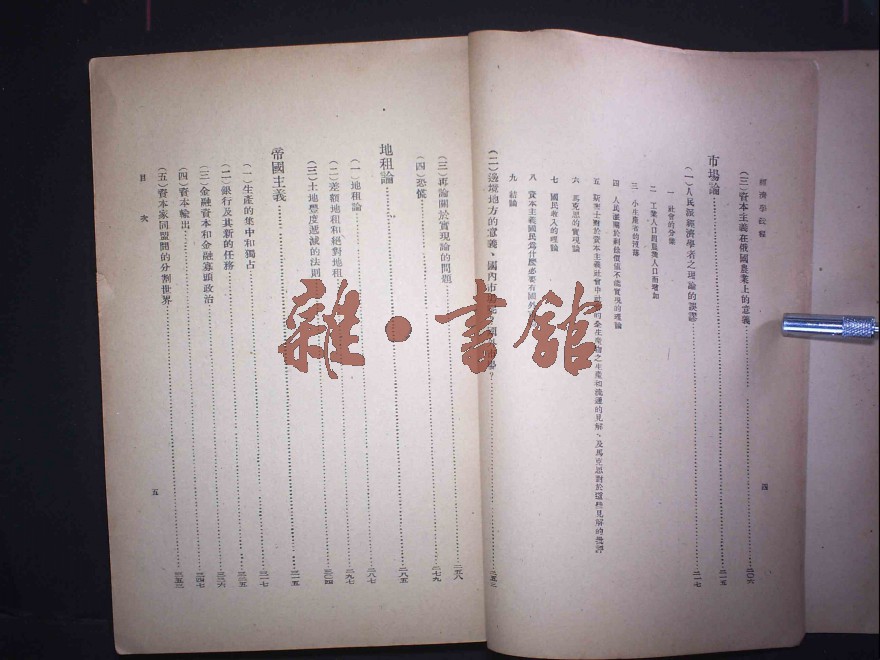 經濟學教程
(三)資本主義在俄國農業上的意義 二〇六
市場論 二一五
(一)人民派經濟學者之理論的誤謬 二一七
一 社會的分業
二 工業人口因農業人口而增加
三 小生產者的沒落
四 人民派關於剩餘價值不能實現的理論
五 斯密士對於資本主義社會中社會的全生產物之生產和流通的見解、及馬克思對於這些見解的批評
六 馬克思的實現論
七 國民收入的理論
八 資本主義國民為什麼必要有國外
九 結論
四
(二)邊境地方的意義、國內市場
(三)再論關於實現論的問題 二五八
(四)恐慌 二七九
地租論 二八五
(一)地租論 二八七
(二)差額地租和絕對地租 二九七
(三)土地豐度遞減的法則 三〇四
帝國主義 三一五
(一)生產的集中和獨占 三一七
(二)銀行及其新的任務 三二五
(三)金融資本和金融寡頭政治 三三六
(四)資本輸出 三四七
(五)資本家同盟間的分割世界 三五二
目次
五
雜·書館